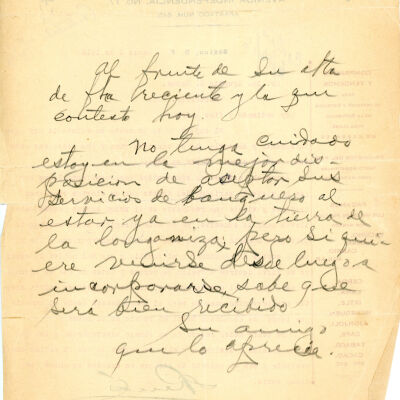 Al frente de su atta
de fha reciente y la que
contesto hoy.
No tenga cuidado
estoy en la mejor dis-
posicion de aceptar sus
servicios de banquero al
estar ya en la tierra de
la longaniza, pero si qui-
ere venirse desde luego a
incorporarse, sabe que
será bien recibido
Su amigo
que lo aprecia.